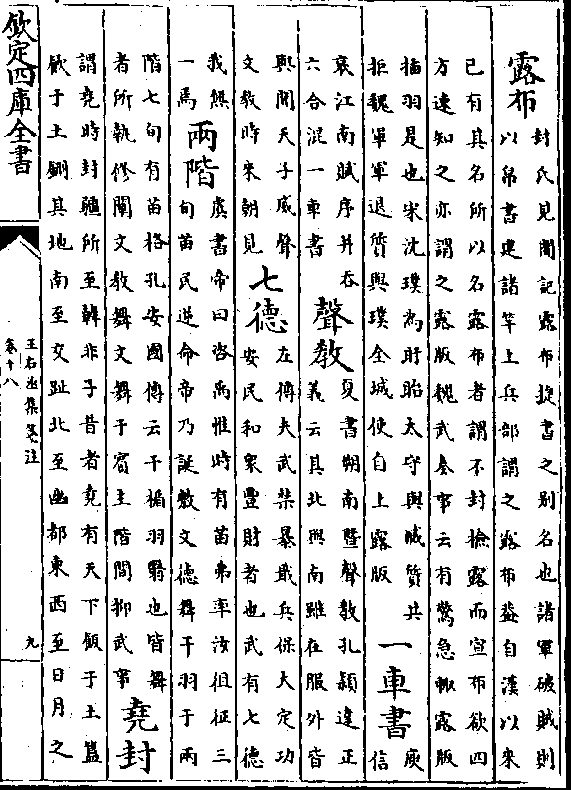 露布
封氏見聞記露布捷書之別名也諸軍破賊則
以帛書建諸竿上兵部謂之露布蓋自漢以來
已有其名所以名露布者謂不封檢露而宣布欲四
方速知之亦謂之露版魏武奏事云有警急輒露版
插羽是也宋沈璞為盱眙太守與臧質共
拒魏軍軍退質與璞全城使自上露版
一車書
庾
信
哀江南賦序并吞
六合混一車書
聲教
夏書朔南暨聲教孔穎達正
義云其北與南雖在服外皆
與聞天子威聲
文教時來朝見
七德
左傳夫武禁暴戢兵保大定功
安民和衆豐財者也武有七德
我無
一焉
兩階
虞書帝曰咨禹惟時有苗弗率汝徂征三
旬苗民逆命帝乃誕敷文德舞干羽于兩
階七旬有苗格孔安國傳云干楯羽翳也皆舞
者所執修闡文教舞文舞于賓主階間抑武事
堯封
謂堯時封疆所至韓非子昔者堯有天下飯于土簋
飲于土鉶其地南至交趾北至幽都東西至日月之
欽定四庫全書
王右丞集箋注
卷十八
九